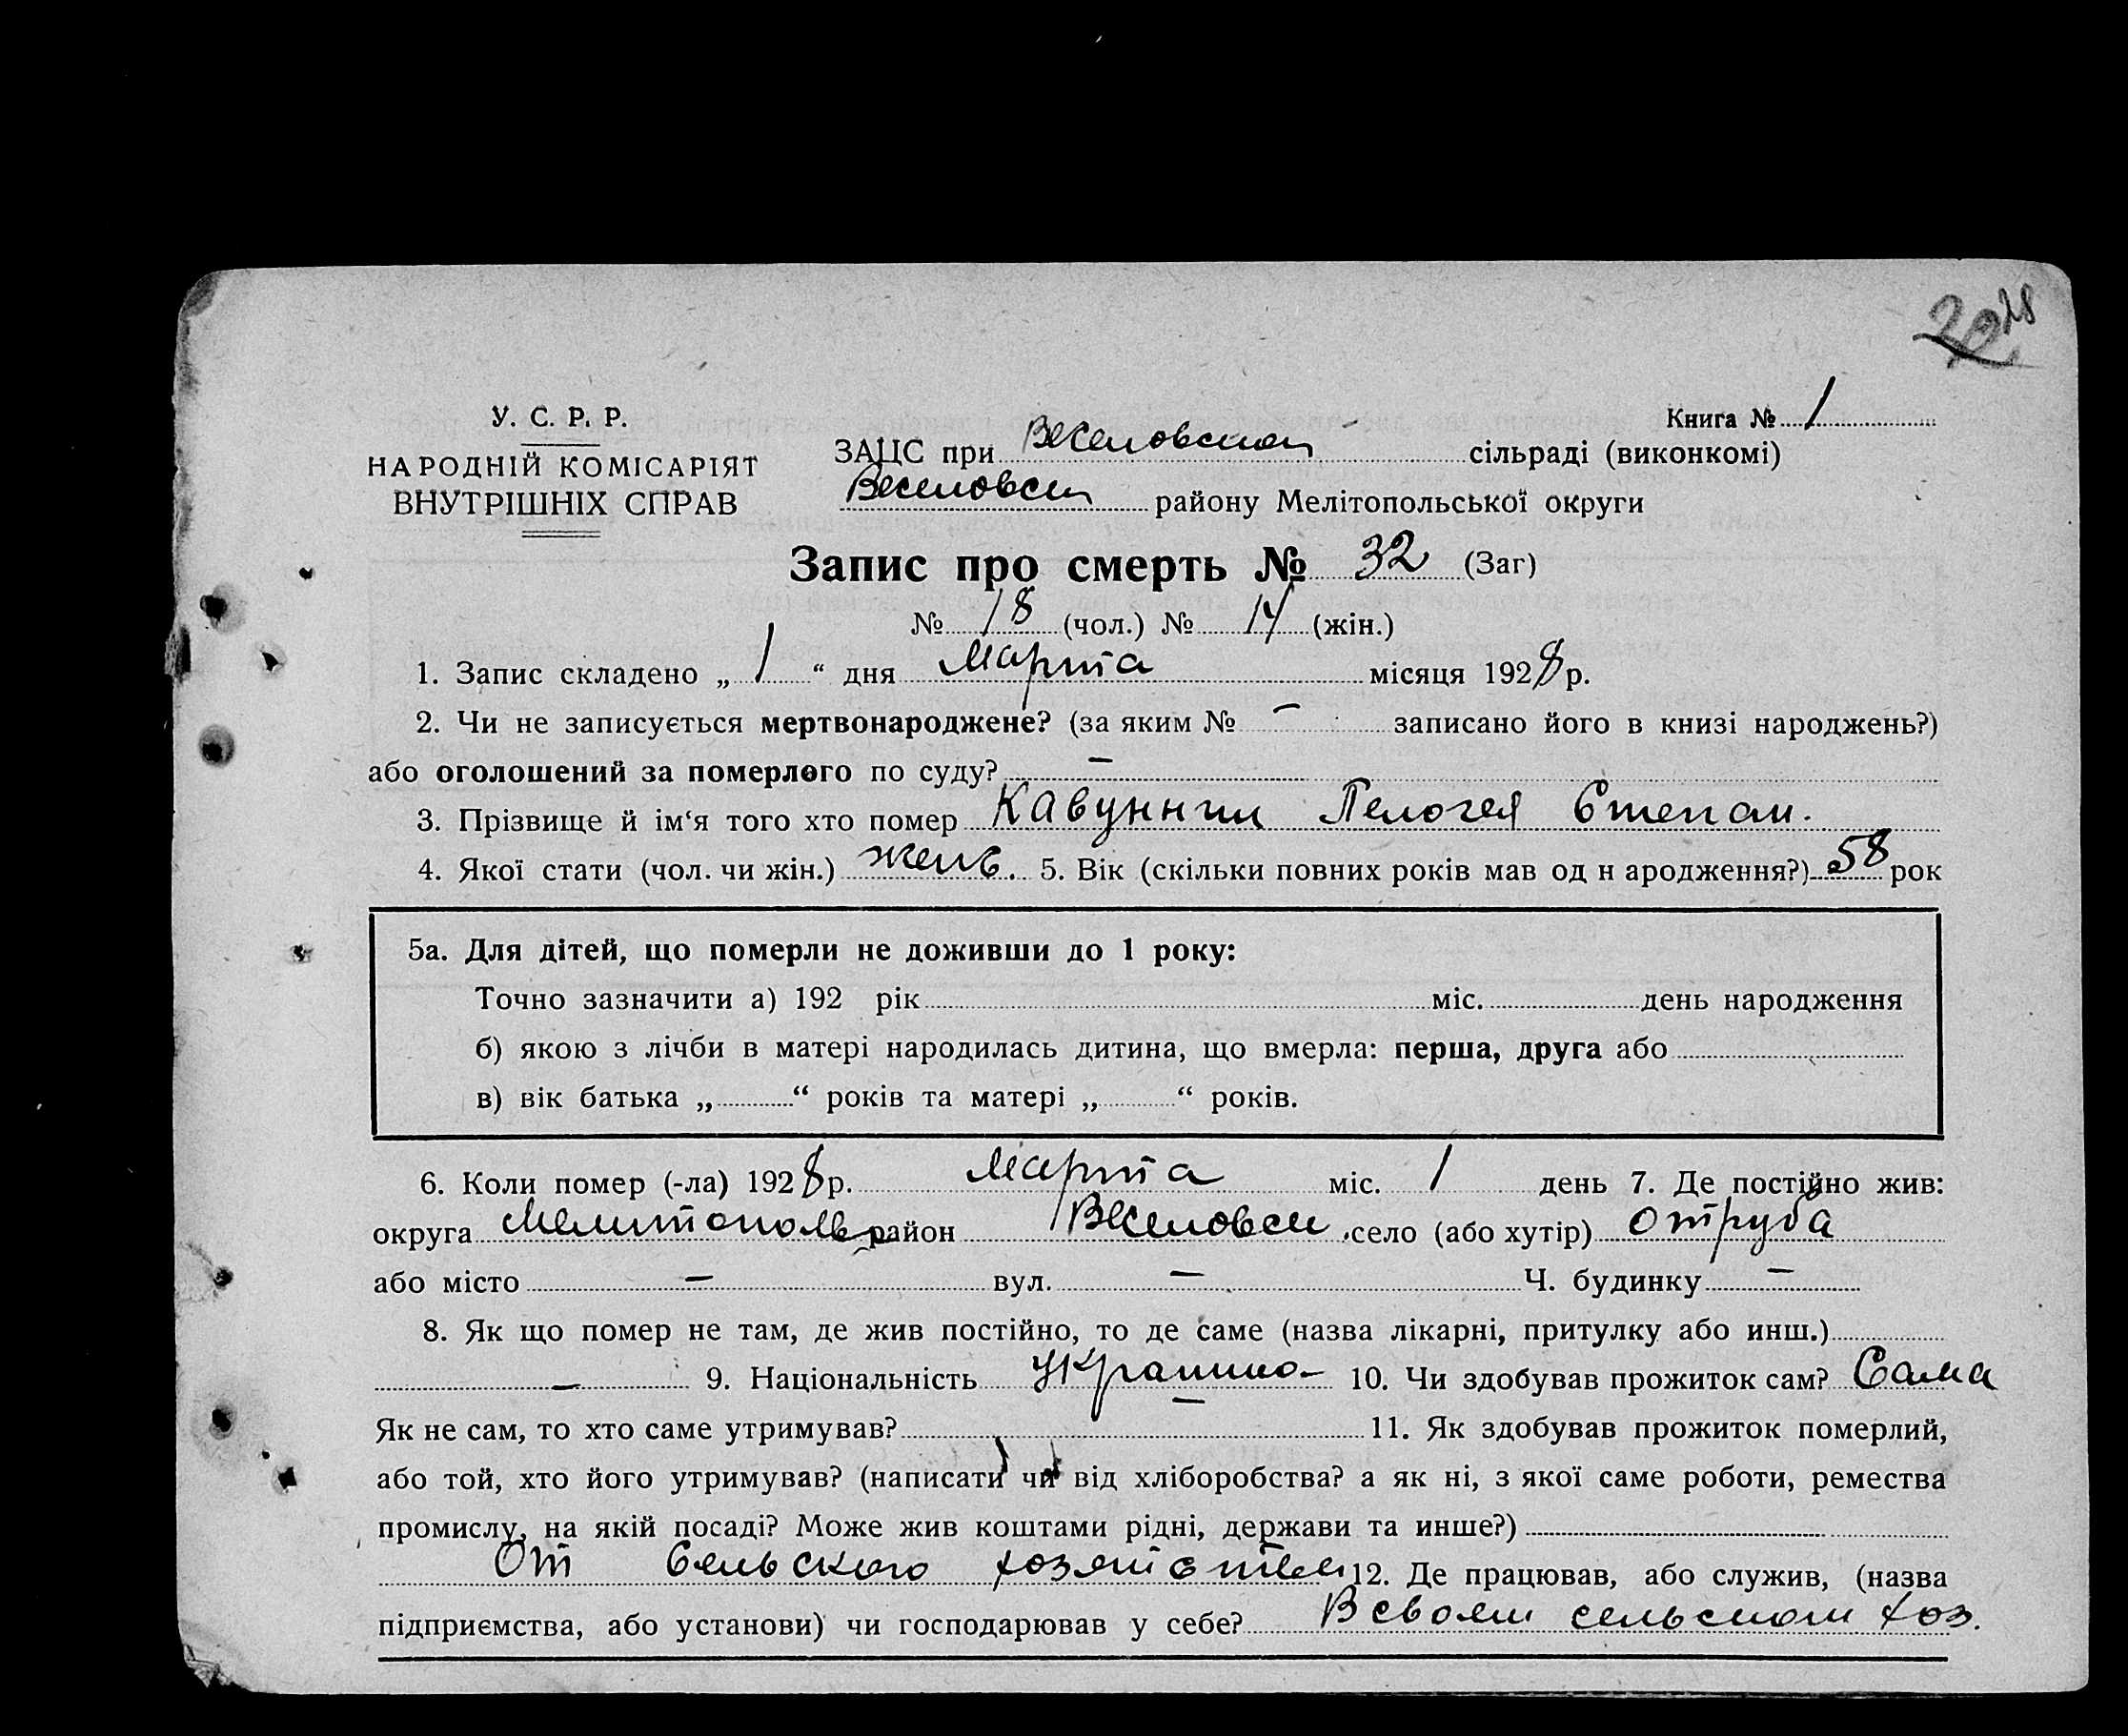 28
У. С. Р. Р.
Книга № 1
НАРОДНІЙ КОМІСАРІЯТ
ВНУТРІШНІХ СПРАВ
ЗАЦС при Веселовском сільраді (виконкомі)
Веселовск району Мелітопольської округи
Запис про смерть № 32 (Заг)
№ 18 (чол.) № 14 (жін.)
1. Запис складено „ 1 “ дня Марта місяця 1928 р.
2. Чи не записується мертвонароджене? (за яким № — записано його в книзі народжень?)
або оголошений за померлого по суду? —
3. Прізвище й ім‘я того хто помер Степан.
4. Якої стати (чол. чи жін.) женс. 5. Вік (скільки повних років мав од н ародження?) 58 рок
5а. Для дітей, що померли не доживши до 1 року:
Точно зазначити а) 192 рік міс. день народження
б) якою з лічби в матері народилась дитина, що вмерла: перша, друга або
в) вік батька „ “ років та матері „ “ років.
6. Коли помер (-ла) 1928 р. Марта міс. 1 день 7. Де постійно жив:
округа Мелитополь район Веселовск село (або хутір) Отруба
або місто — вул. — Ч. будинку —
8. Як що помер не там, де жив постійно, то де саме (назва лікарні, притулку або инш.)
— 9. Національність 10. Чи здобував прожиток сам? Сама
Як не сам, то хто саме утримував? — 11. Як здобував прожиток померлий,
або той, хто його утримував? (написати чи від хліборобства? а як ні, з якої саме роботи, ремества
промислу, на якій посаді? Може жив коштами рідні, держави та инше?)
От сельского хозяйства 12. Де працював, або служив, (назва
підприємства, або установи) чи господарював у себе? В своем сельском хоз.